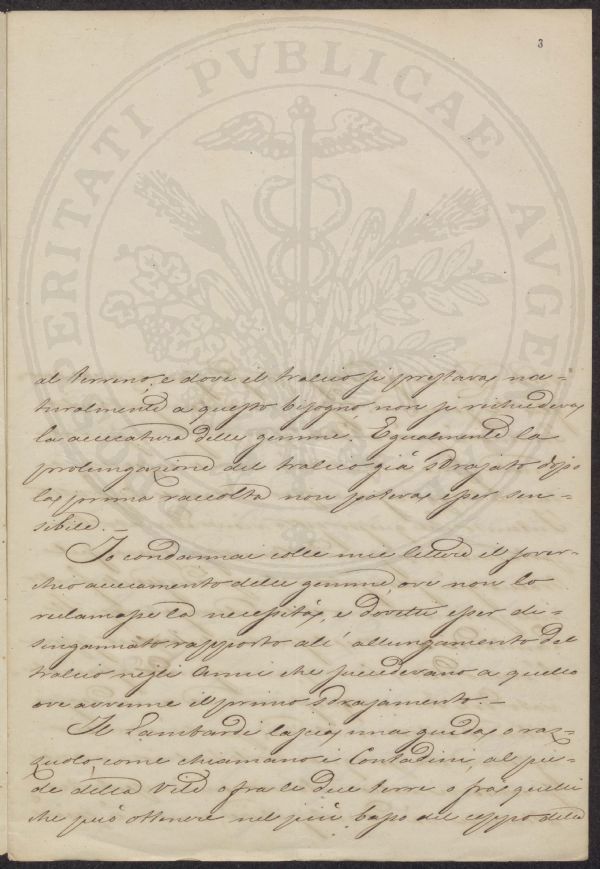 3
PROSPERITATI PVBLICAE AVGENDAE
al terreno, e dove il tralcio si prestava na-
turalmente a questo bisogno non si richiedeva
la accecatura delle gemme. Egualmente la
prolungazione del tralcio già sdrajato dopo
la prima raccolta non poteva esser sen-
sibile. –
Io condannai colle mie lettere il sover-
chio accecamento delle gemme, ove non lo
reclamasse la necessità, e dovetti esser di-
singannato rapporto all' allungamento del
tralcio negli anni che succedevano a quello
ove avvenne il primo sdrajamento. –
Il Lambardi lascia una guida, o raz-
zuolo, come chiamano i Contadini, al pie-
de della Vite o fra le due terre o fra quelli
che può ottenere nel più basso del ceppo della